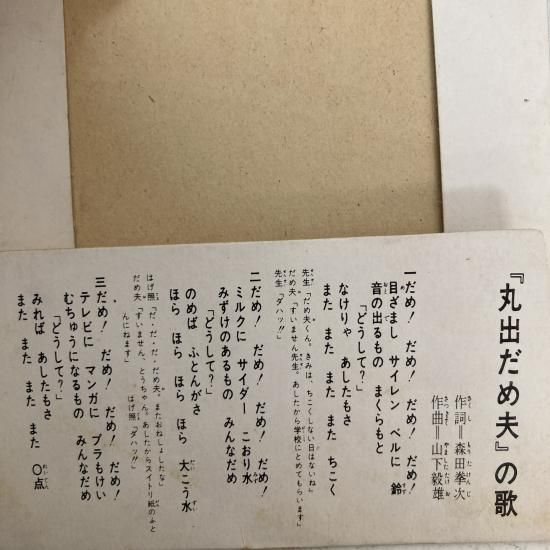 『丸出だめ夫』の歌
作詞＝森田拳次
作曲＝山下毅雄
一 だめ！　だめ！　だめ！　だめ！
目ざまし　サイレン　ベルに　鈴
音の出るもの　まくらもと
「どうして？」
なけりゃ　あしたもさ
また　また　また　また　ちこく
先生「だめ夫くん。きみは、ちこくしない日はないね」
だめ夫「すいません先生。あしたから学校にとめてもらいます」
先生「ダハッ!!」
二 だめ！　だめ！　だめ！　だめ！
ミルクに　サイダー　こおり水
みずけのあるもの　みんなだめ
「どうして？」
のめば　ふとんがさ
ほら　ほら　ほら　ほら　大こう水
はげ照「だ・だ・だ・だめ夫。またおねしょしたな」
だめ夫「すいません、とうちゃん。あしたからスイトリ紙のふと
んにねます」　はげ照「ダハッ!!」
三 だめ！　だめ！　だめ！　だめ！
テレビに　マンガに　プラもけい
むちゅうになるもの　みんなだめ
「どうして？」
みれば　あしたもさ
また　また　また　また　〇点